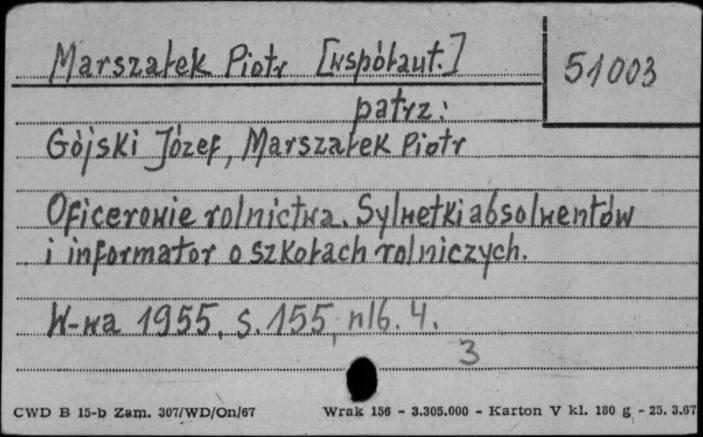 Marszałek Piotr [współaut.]
51003
patrz:
Gójski Józef, Marszałek Piotr
Oficerowie rolnictwa. Sylwetki absolwentów
i informator o szkołach rolniczych.
W-wa 1955, s. 155, nlb. 4.
3
CWD B 15-b Zam. 307/WD/On/67 Wrak 156 - 3.305.000 - Karton V kl. 180 g - 25. 3.67